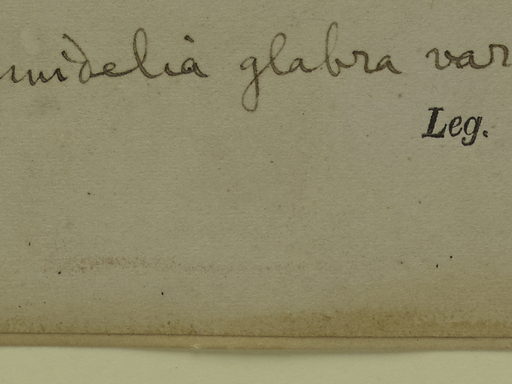 midelia glabra var
Leg.